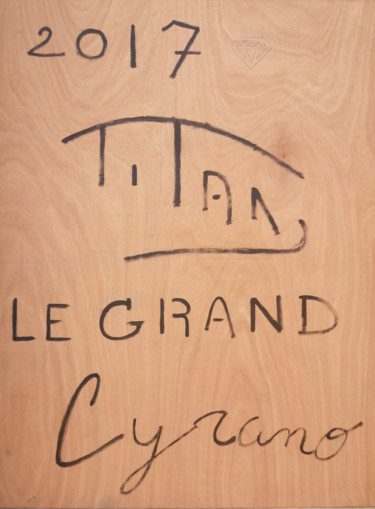 2017
TiTAN
LE GRAND
Cyrano